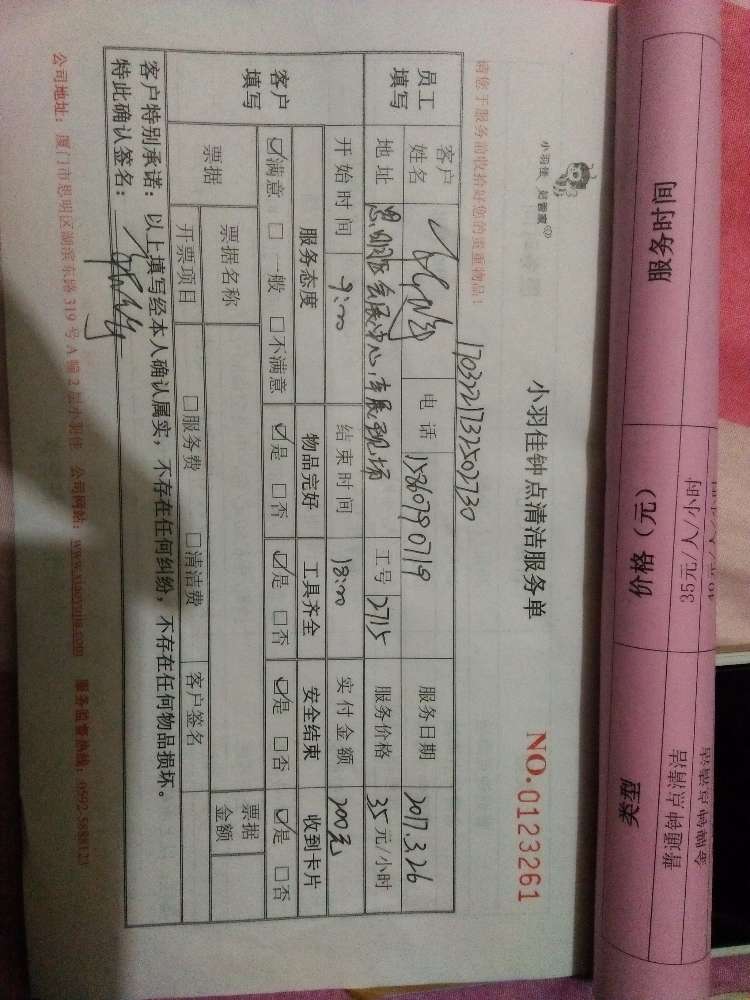 小羽佳 好管家
小羽佳钟点清洁服务单
NO.0123261
请您于服务前收拾好您的贵重物品！
170321732502730
员工填写 客户姓名 电话 15860790719 服务日期 2017.3.26
地址 思明区会展中心,车展现场 工号 2715 服务价格 35元/小时
客户填写 开始时间 9:00 结束时间 18:00 实付金额 200元
服务态度 物品完好 工具齐全 安全结束 收到卡片
☑满意 □一般 □不满意 ☑是 □否 ☑是 □否 ☑是 □否 ☑是 □否
票据 票据名称 票据金额
开票项目 □服务费 □清洁费 客户签名
客户特别承诺：以上填写经本人确认属实，不存在任何纠纷，不存在任何物品损坏。
特此确认签名：
公司地址：厦门市思明区湖滨东路319号A幢2层小羽佳 公司网站：www.xiaoyujia.com 服务监督热线：0592-5888123
服务时间 价格（元） 类型
35元/人/小时 普通钟点清洁